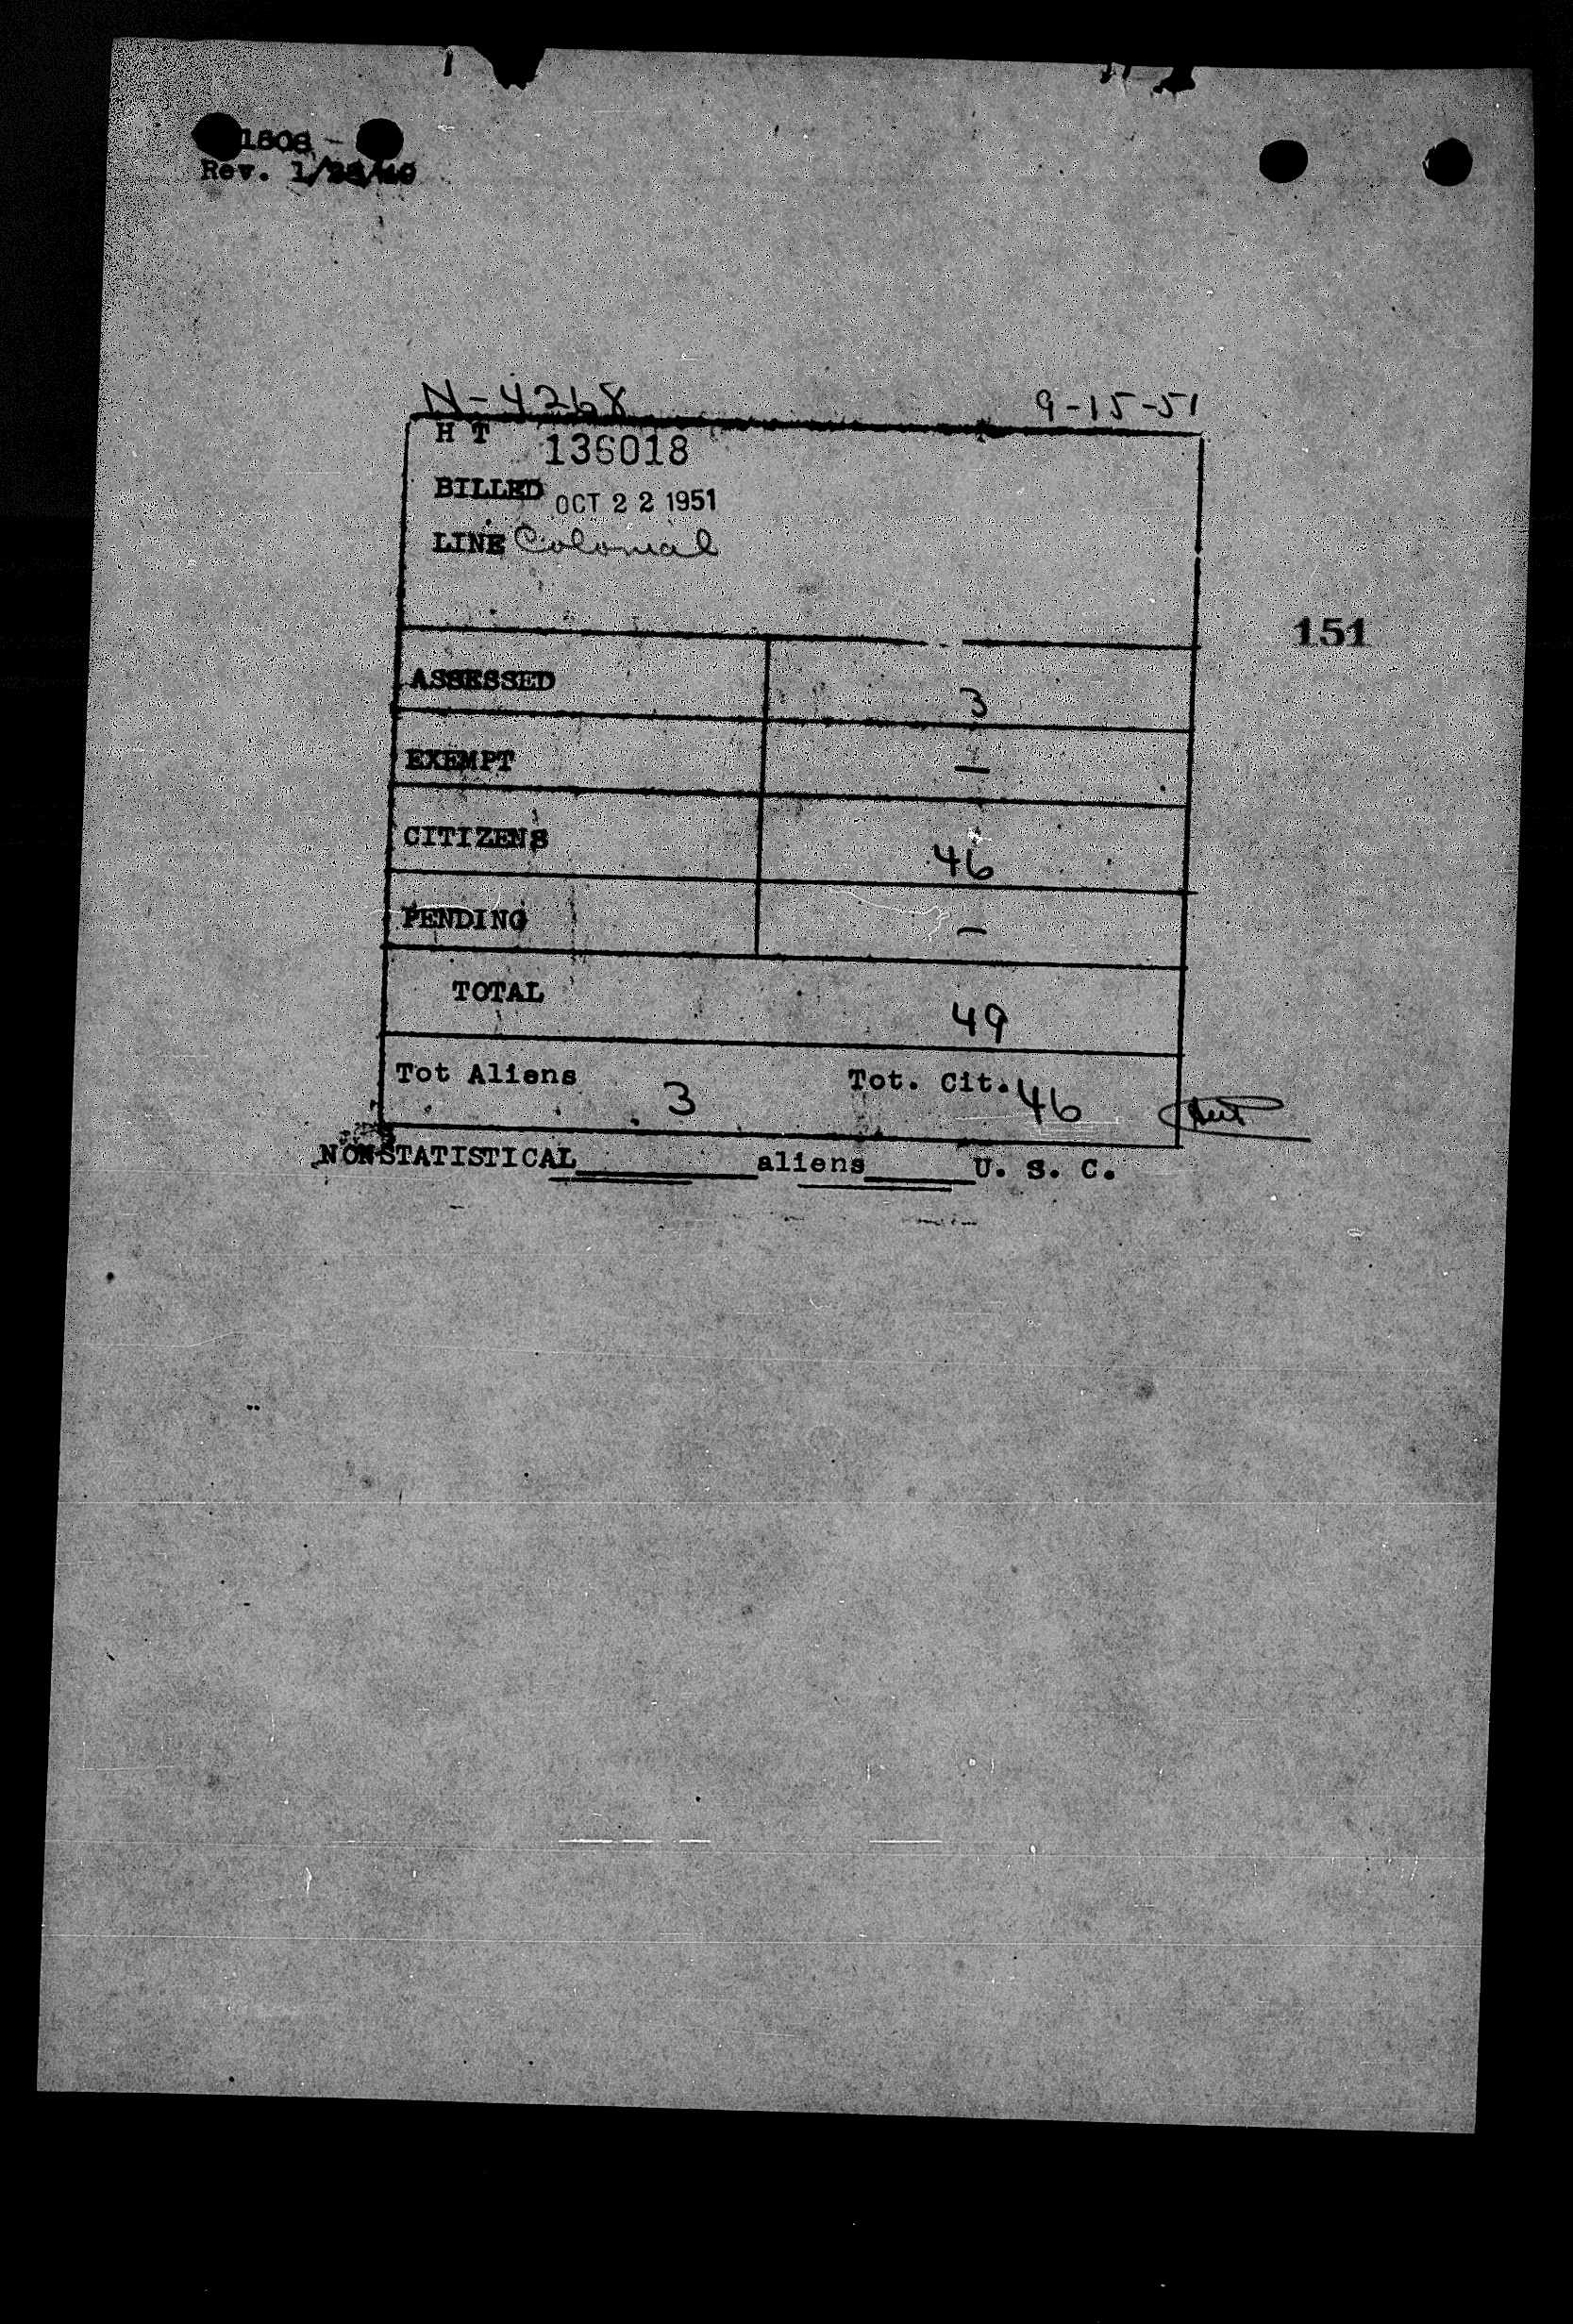 1808 -
Rev. 1/23/40
N-4268 9-15-51
H T 136018
BILLED OCT 22 1951
LINE Colonial
151
ASSESSED 3
EXEMPT —
CITIZENS 46
PENDING —
TOTAL 49
Tot Aliens 3 Tot. Cit. 46
NONSTATISTICAL aliens U. S. C.